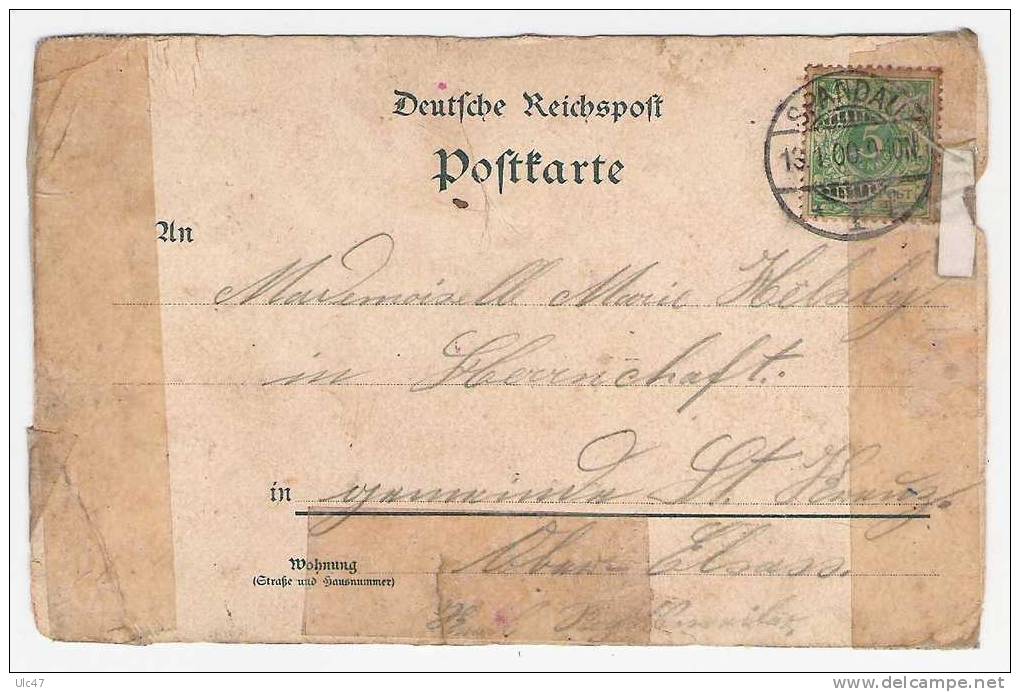 Deutsche Reichspost
Postkarte
SPANDAU
5
An
Mademoiselle Marie
in Herrnchaft.
in gemeinde St. Kreuz.
Wohnung
(Straße und Hausnummer)
Ober Elsass
Ulc47
delcampe.net